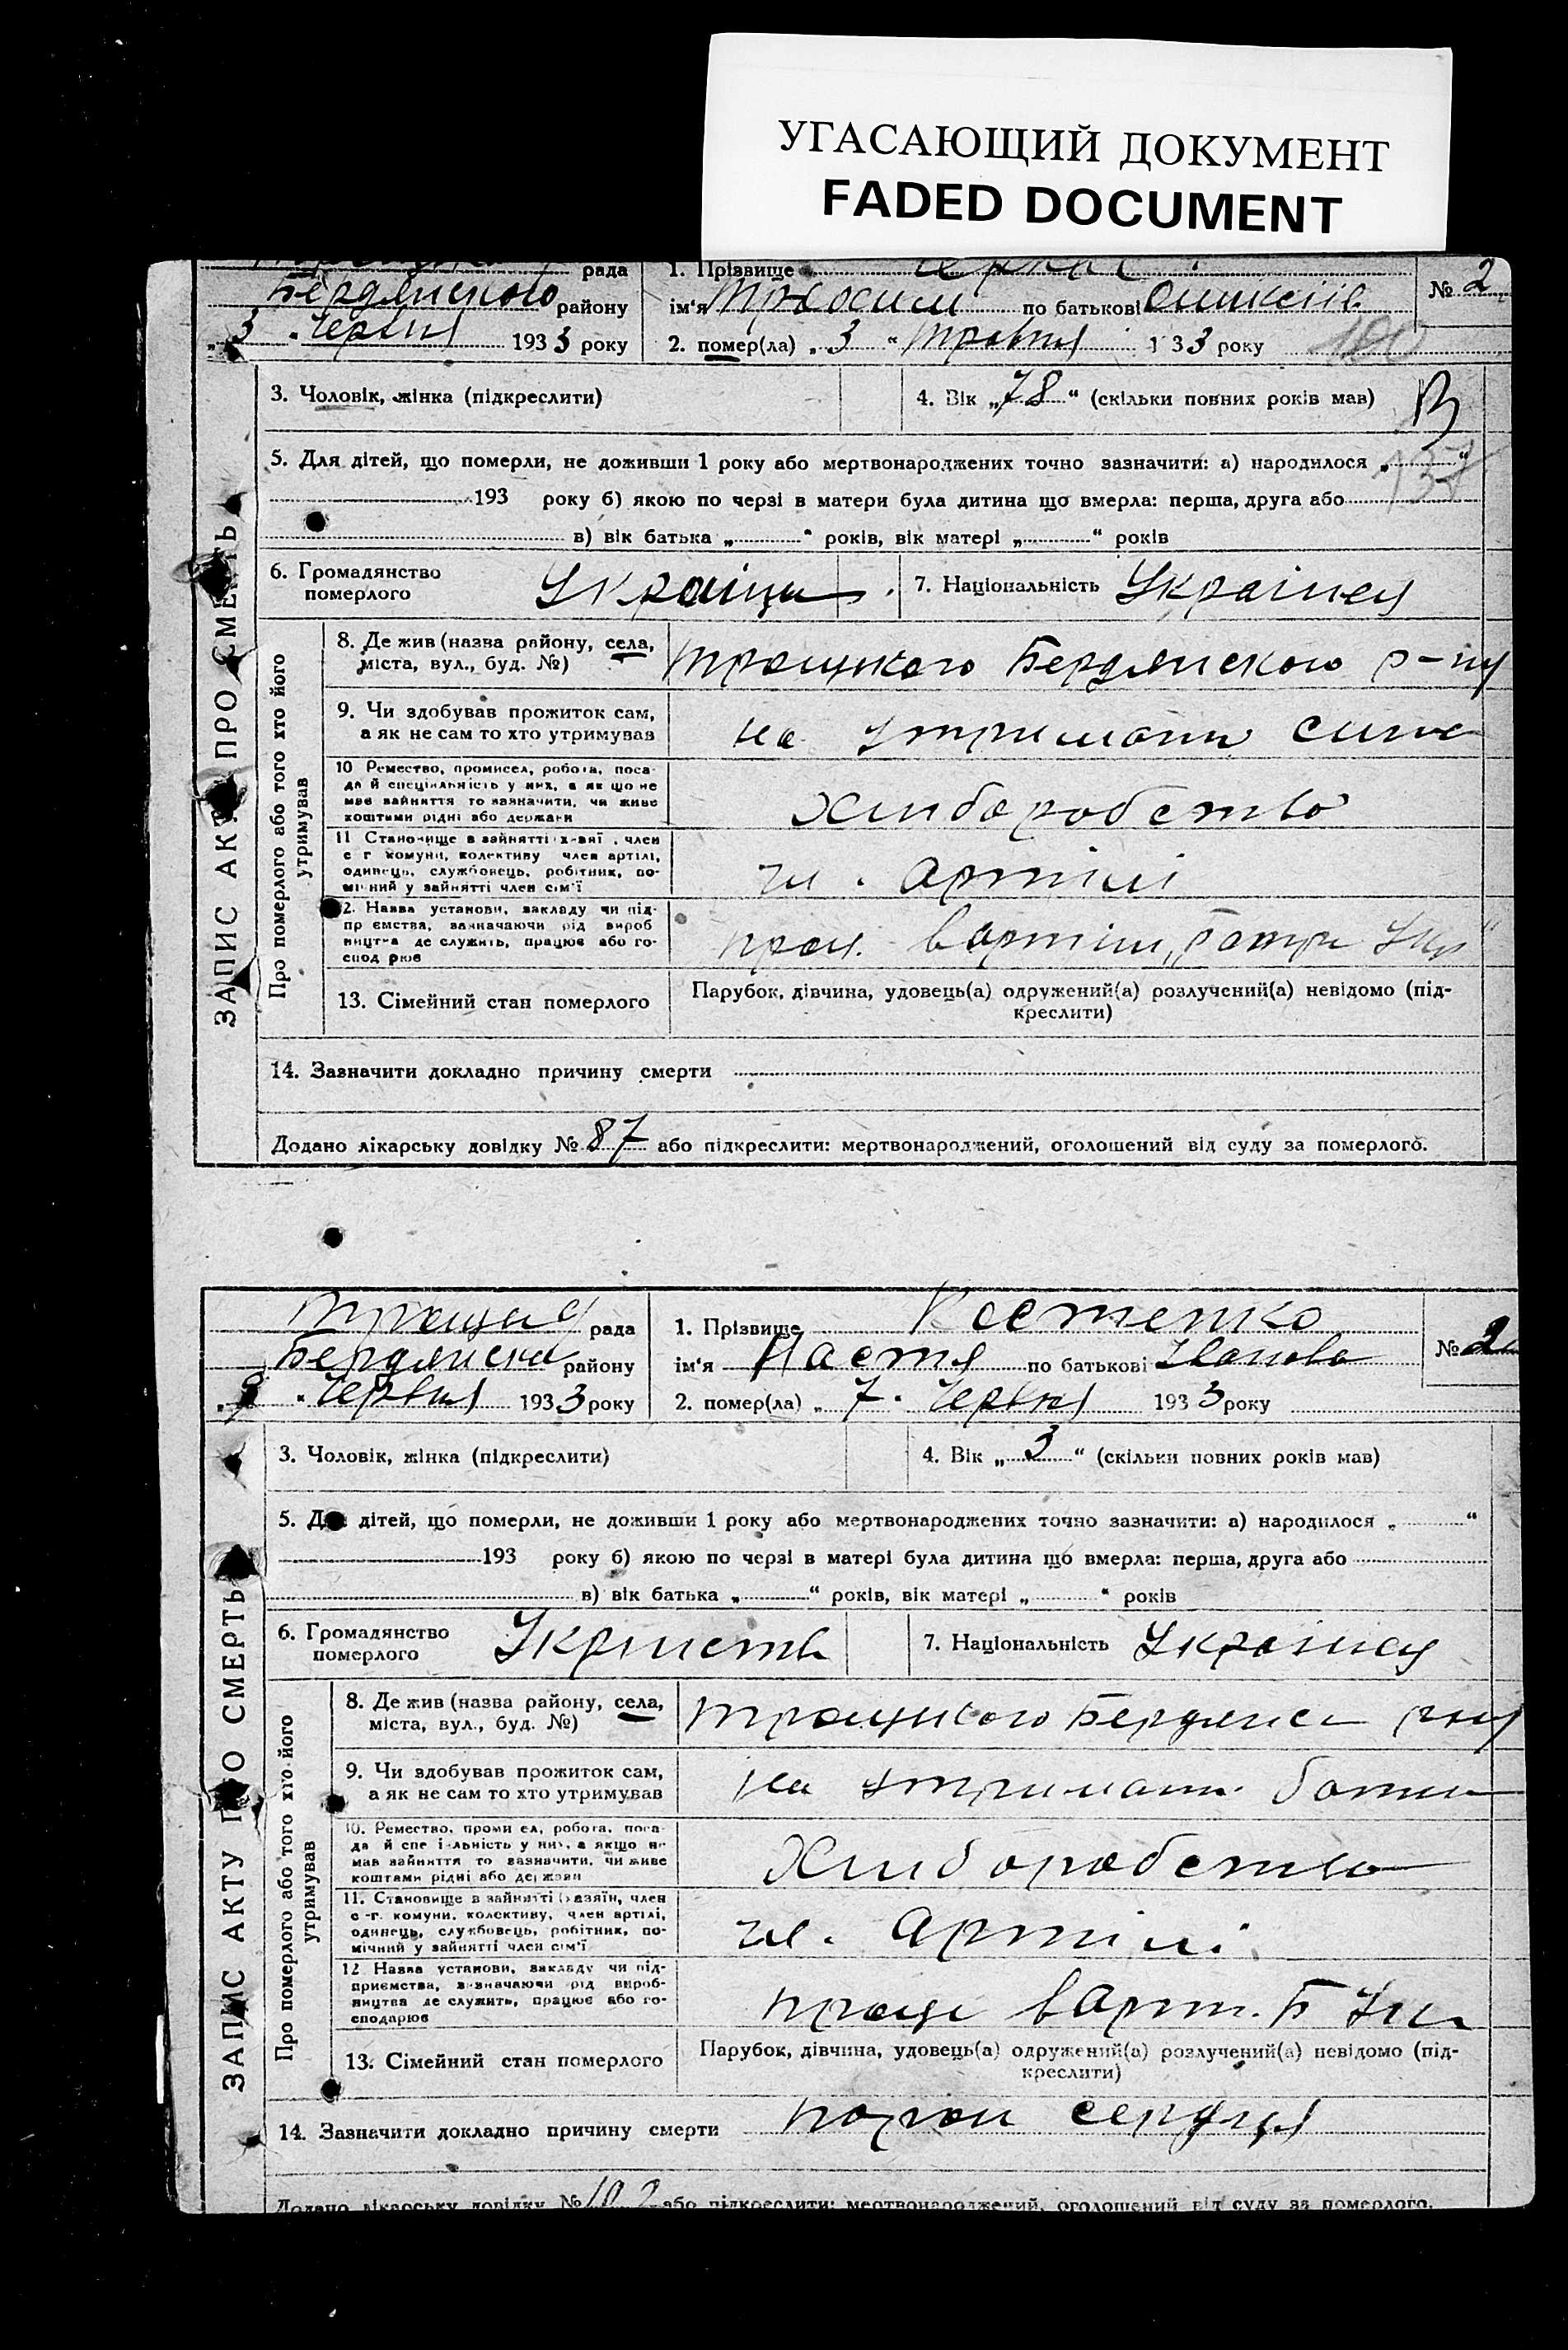 УГАСАЮЩИЙ ДОКУМЕНТ
FADED DOCUMENT
ЗАПИС АКТУ ПРО СМЕРТЬ
рада
Бердянского району
„3 " Червня 1933 року
1. Прізвище
ім'я по батькові
2. помер(ла) „ 3 " Травня 1933 року
№ 2
3. Чоловік, жінка (підкреслити)
4. Вік „78" (скільки повних років мав)
5. Для дітей, що померли, не доживши 1 року або мертвонароджених точно зазначити: а) народилося „ "
193 року б) якою по черзі в матери була дитина що вмерла: перша, друга або
в) вік батька „ " років, вік матері „ " років
6. Громадянство
померлого
7. Національність Українец
Про померлого або того хто його утримував
8. Де жив (назва району, села,
міста, вул., буд. №)
Троцького Бердянского р-ну
9. Чи здобував прожиток сам,
а як не сам то хто утримував
на утриманн сина
10 Ремество, промисел, робота, поса-
да й спеціяльність у них, а як що не
мав зайняття то зазначити, чи живе
коштами рідні або держави
Хлиборобство
11 Становище в зайнятті член
с г комуни, колективу член артілі,
одинець, службовець, робітник, по-
мічний у зайнятті член сім'ї
чл. артілі
12. Назва установи, закладу чи під-
приємства, зазначаючи рід вироб
ництва де служить, працює або го-
спод рює
прац. в артіли
13. Сімейний стан померлого
Парубок, дівчина, удовець(а) одружений(а) розлучений(а) невідомо (під-
креслити)
14. Зазначити докладно причину смерти
Додано лікарську довідку № 87 або підкреслити: мертвонароджений, оголошений від суду за померлого.
ЗАПИС АКТУ ПРО СМЕРТЬ
рада
району
" Червня 1933 року
1. Прізвище Костенко
ім'я Настя по батькові Іванова
2. помер(ла) „ 7 " Червня 1933 року
№ 2
3. Чоловік, жінка (підкреслити)
4. Вік „ 3 " (скільки повних років мав)
5. Для дітей, що померли, не доживши 1 року або мертвонароджених точно зазначити: а) народилося „ "
193 року б) якою по черзі в матері була дитина що вмерла: перша, друга або
в) вік батька „ " років, вік матері „ " років
6. Громадянство
померлого
7. Національність
Про померлого або того хто його утримував
8. Де жив (назва району, села,
міста, вул., буд. №)
Троцького
9. Чи здобував прожиток сам,
а як не сам то хто утримував
на утриманн
10. Ремество, промисел, робота, поса-
да й спеціяльність у них, а якщо не
мав зайняття то зазначити, чи живе
коштами рідні або держави
Хлиборобство
11. Становище в зайнятті (хазяїн, член
с-г. комуни, колективу, член артілі,
одинець, службовець, робітник, по-
мічний у зайнятті член сім'ї
чл. артіли
12 Назва установи, закладу чи під-
приємства, зазначаючи рід вироб-
ництва де служить, працює або го-
сподарює
праце в арт. Б
13. Сімейний стан померлого
Парубок, дівчина, удовець(а) одружений(а) розлучений(а) невідомо (під-
креслити)
14. Зазначити докладно причину смерти сердця
Додано лікарську довідку № або підкреслити: мертвонароджений, оголошений від суду за померлого.